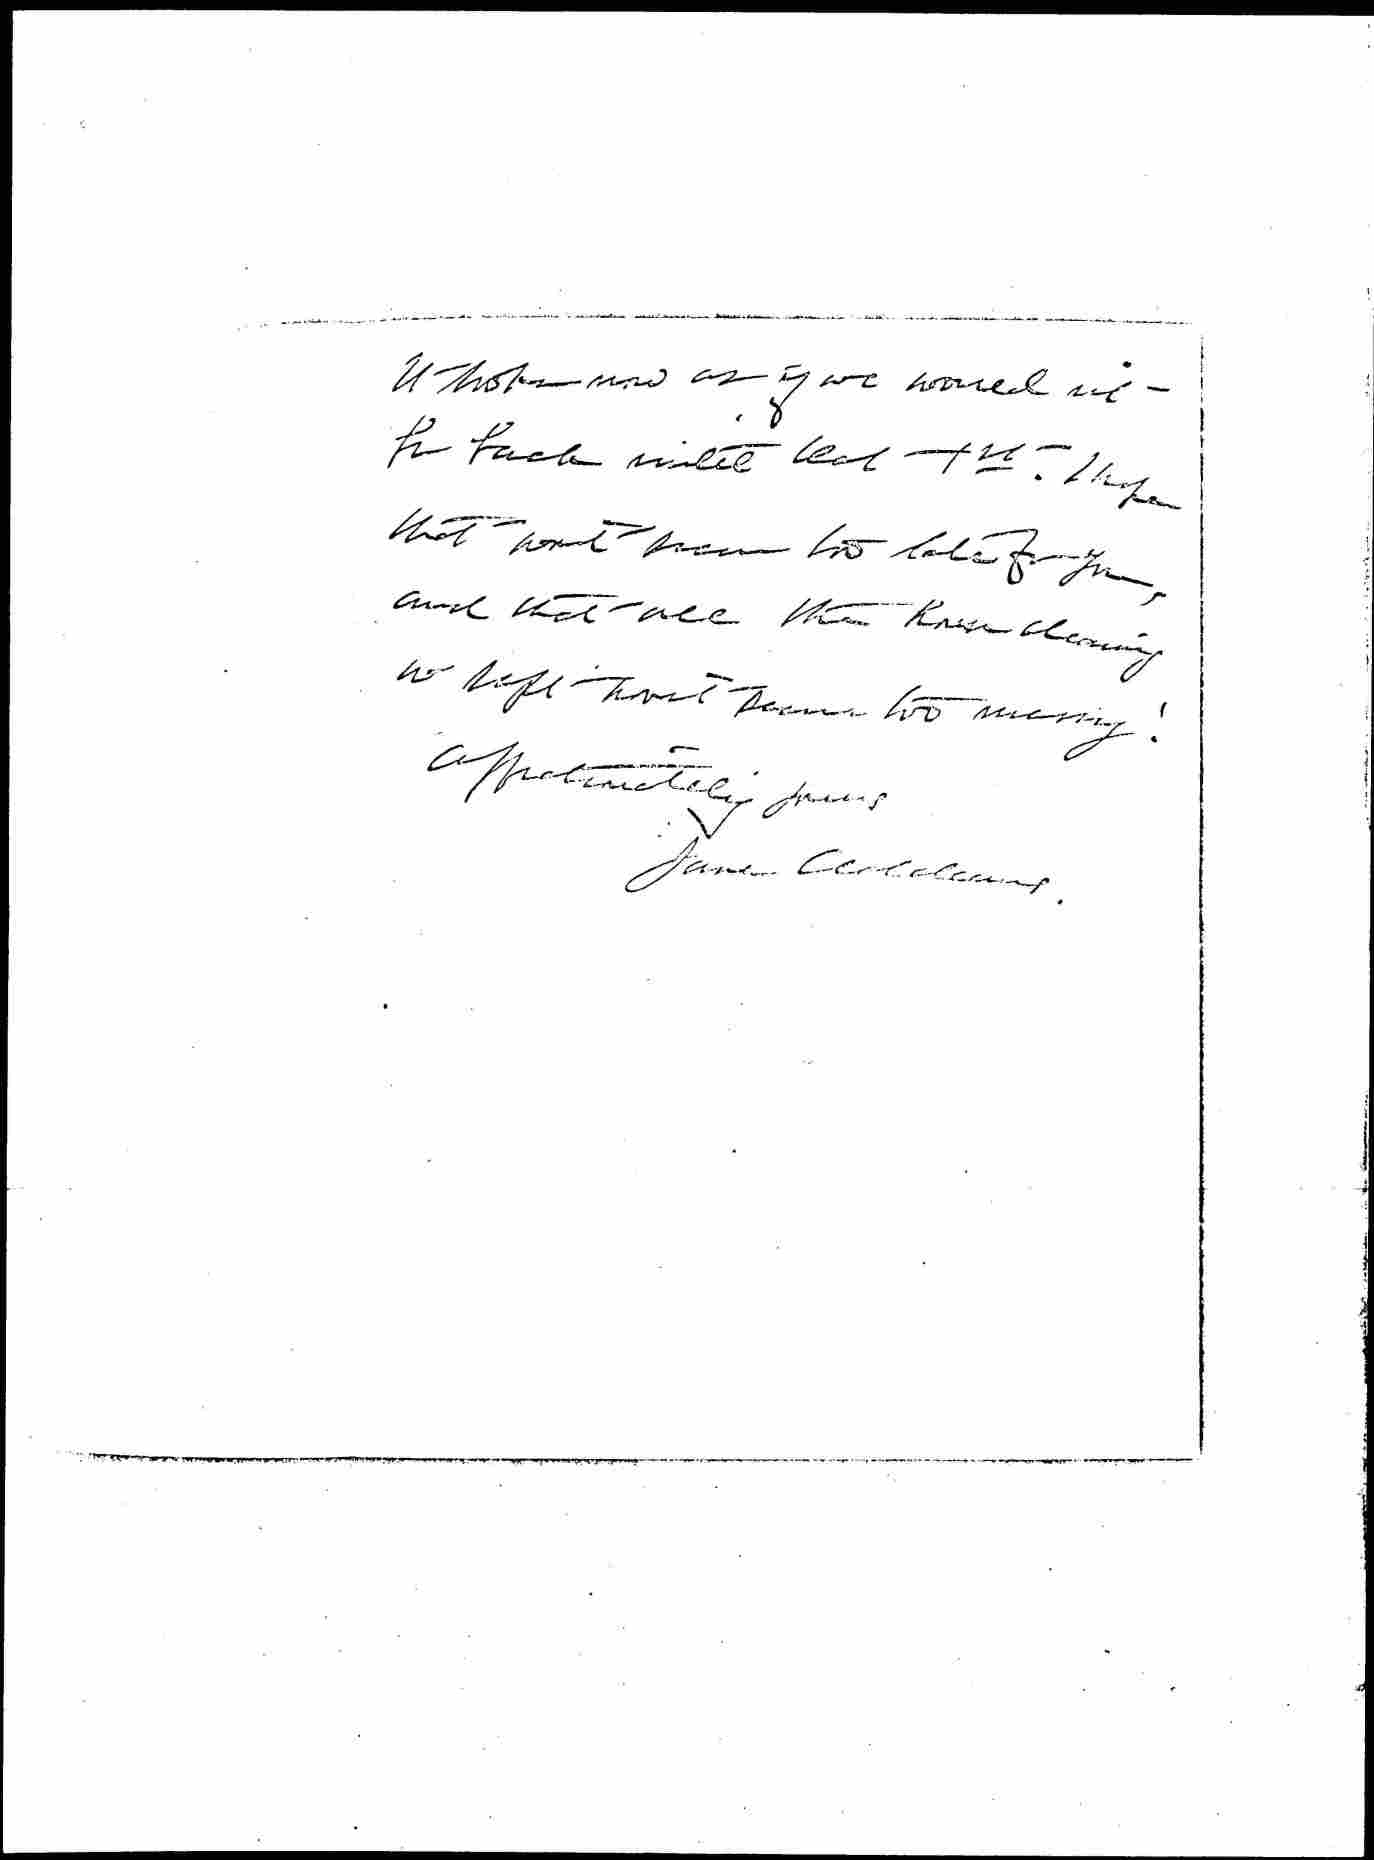 It looks now as if we would not
be back until Oct 4th. I hope
that won't seem too late for you,
and that all the house cleaning
we left won't seem too messy!
Affectionately yours
Jane